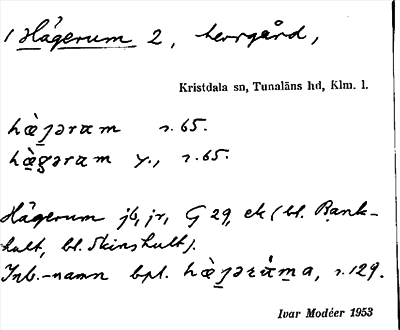 1 Hägerum 2, herrgård,
Kristdala sn, Tunaläns hd, Klm. l.
hæ̀ɟəram r. 65.
hæ̀gəram y., r. 65.
Hägerum jb, jr, G 29, ek (bl. Bank-
hult, bl. Skinshult).
Inb.-namn bpl. r. 129.
Ivar Modéer 1953